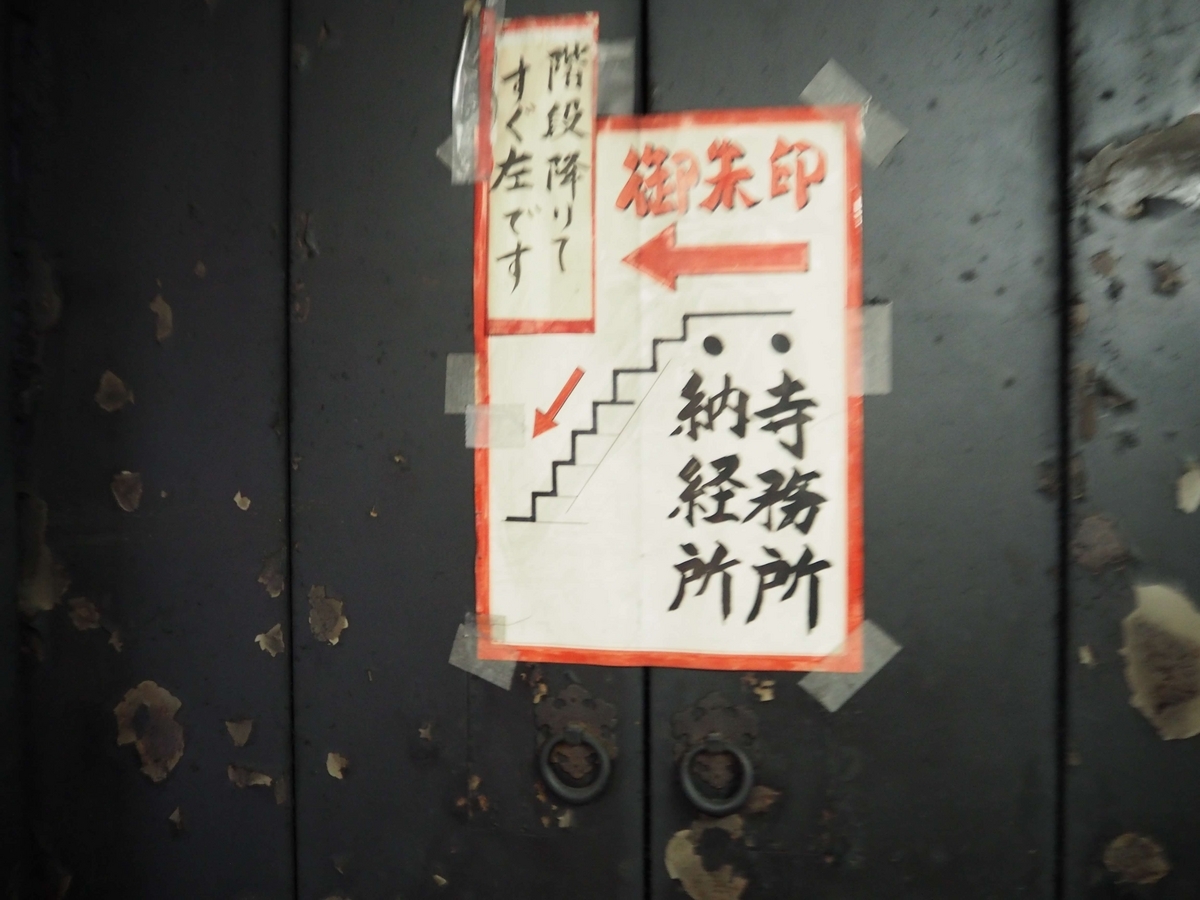 階段降りて
すぐ左です
御朱印
・寺務所
・納経所